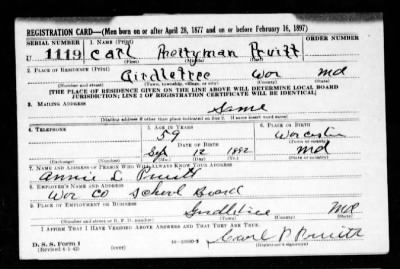 REGISTRATION CARD—(Men born on or after April 28, 1877 and on or before February 16, 1897)
SERIAL NUMBER 1. NAME (Print) ORDER NUMBER
U 1119 Carl Prettyman Pruitt
(First) (Middle) (Last)
2. PLACE OF RESIDENCE (Print)
Girdletree Wor Md
(Number and street) (Town, township, village, or city) (County) (State)
[THE PLACE OF RESIDENCE GIVEN ON THE LINE ABOVE WILL DETERMINE LOCAL BOARD
JURISDICTION; LINE 2 OF REGISTRATION CERTIFICATE WILL BE IDENTICAL]
3. MAILING ADDRESS
Same
(Mailing address if other than place indicated on line 2. If same insert word same)
4. TELEPHONE 5. AGE IN YEARS 6. PLACE OF BIRTH
59 Worcester
DATE OF BIRTH (Town or county)
Sep 12 1882 Md
(Exchange) (Number) (Mo.) (Day) (Yr.) (State or country)
7. NAME AND ADDRESS OF PERSON WHO WILL ALWAYS KNOW YOUR ADDRESS
Annie L Pruitt
8. EMPLOYER'S NAME AND ADDRESS
Wor Co School Board
9. PLACE OF EMPLOYMENT OR BUSINESS
Girdletree Md
(Number and street or R. F. D. number) (Town) (County) (State)
I AFFIRM THAT I HAVE VERIFIED ABOVE ANSWERS AND THAT THEY ARE TRUE.
D. S. S. Form 1
(Revised 4-1-42) Carl P Pruitt
(Registrant's signature)